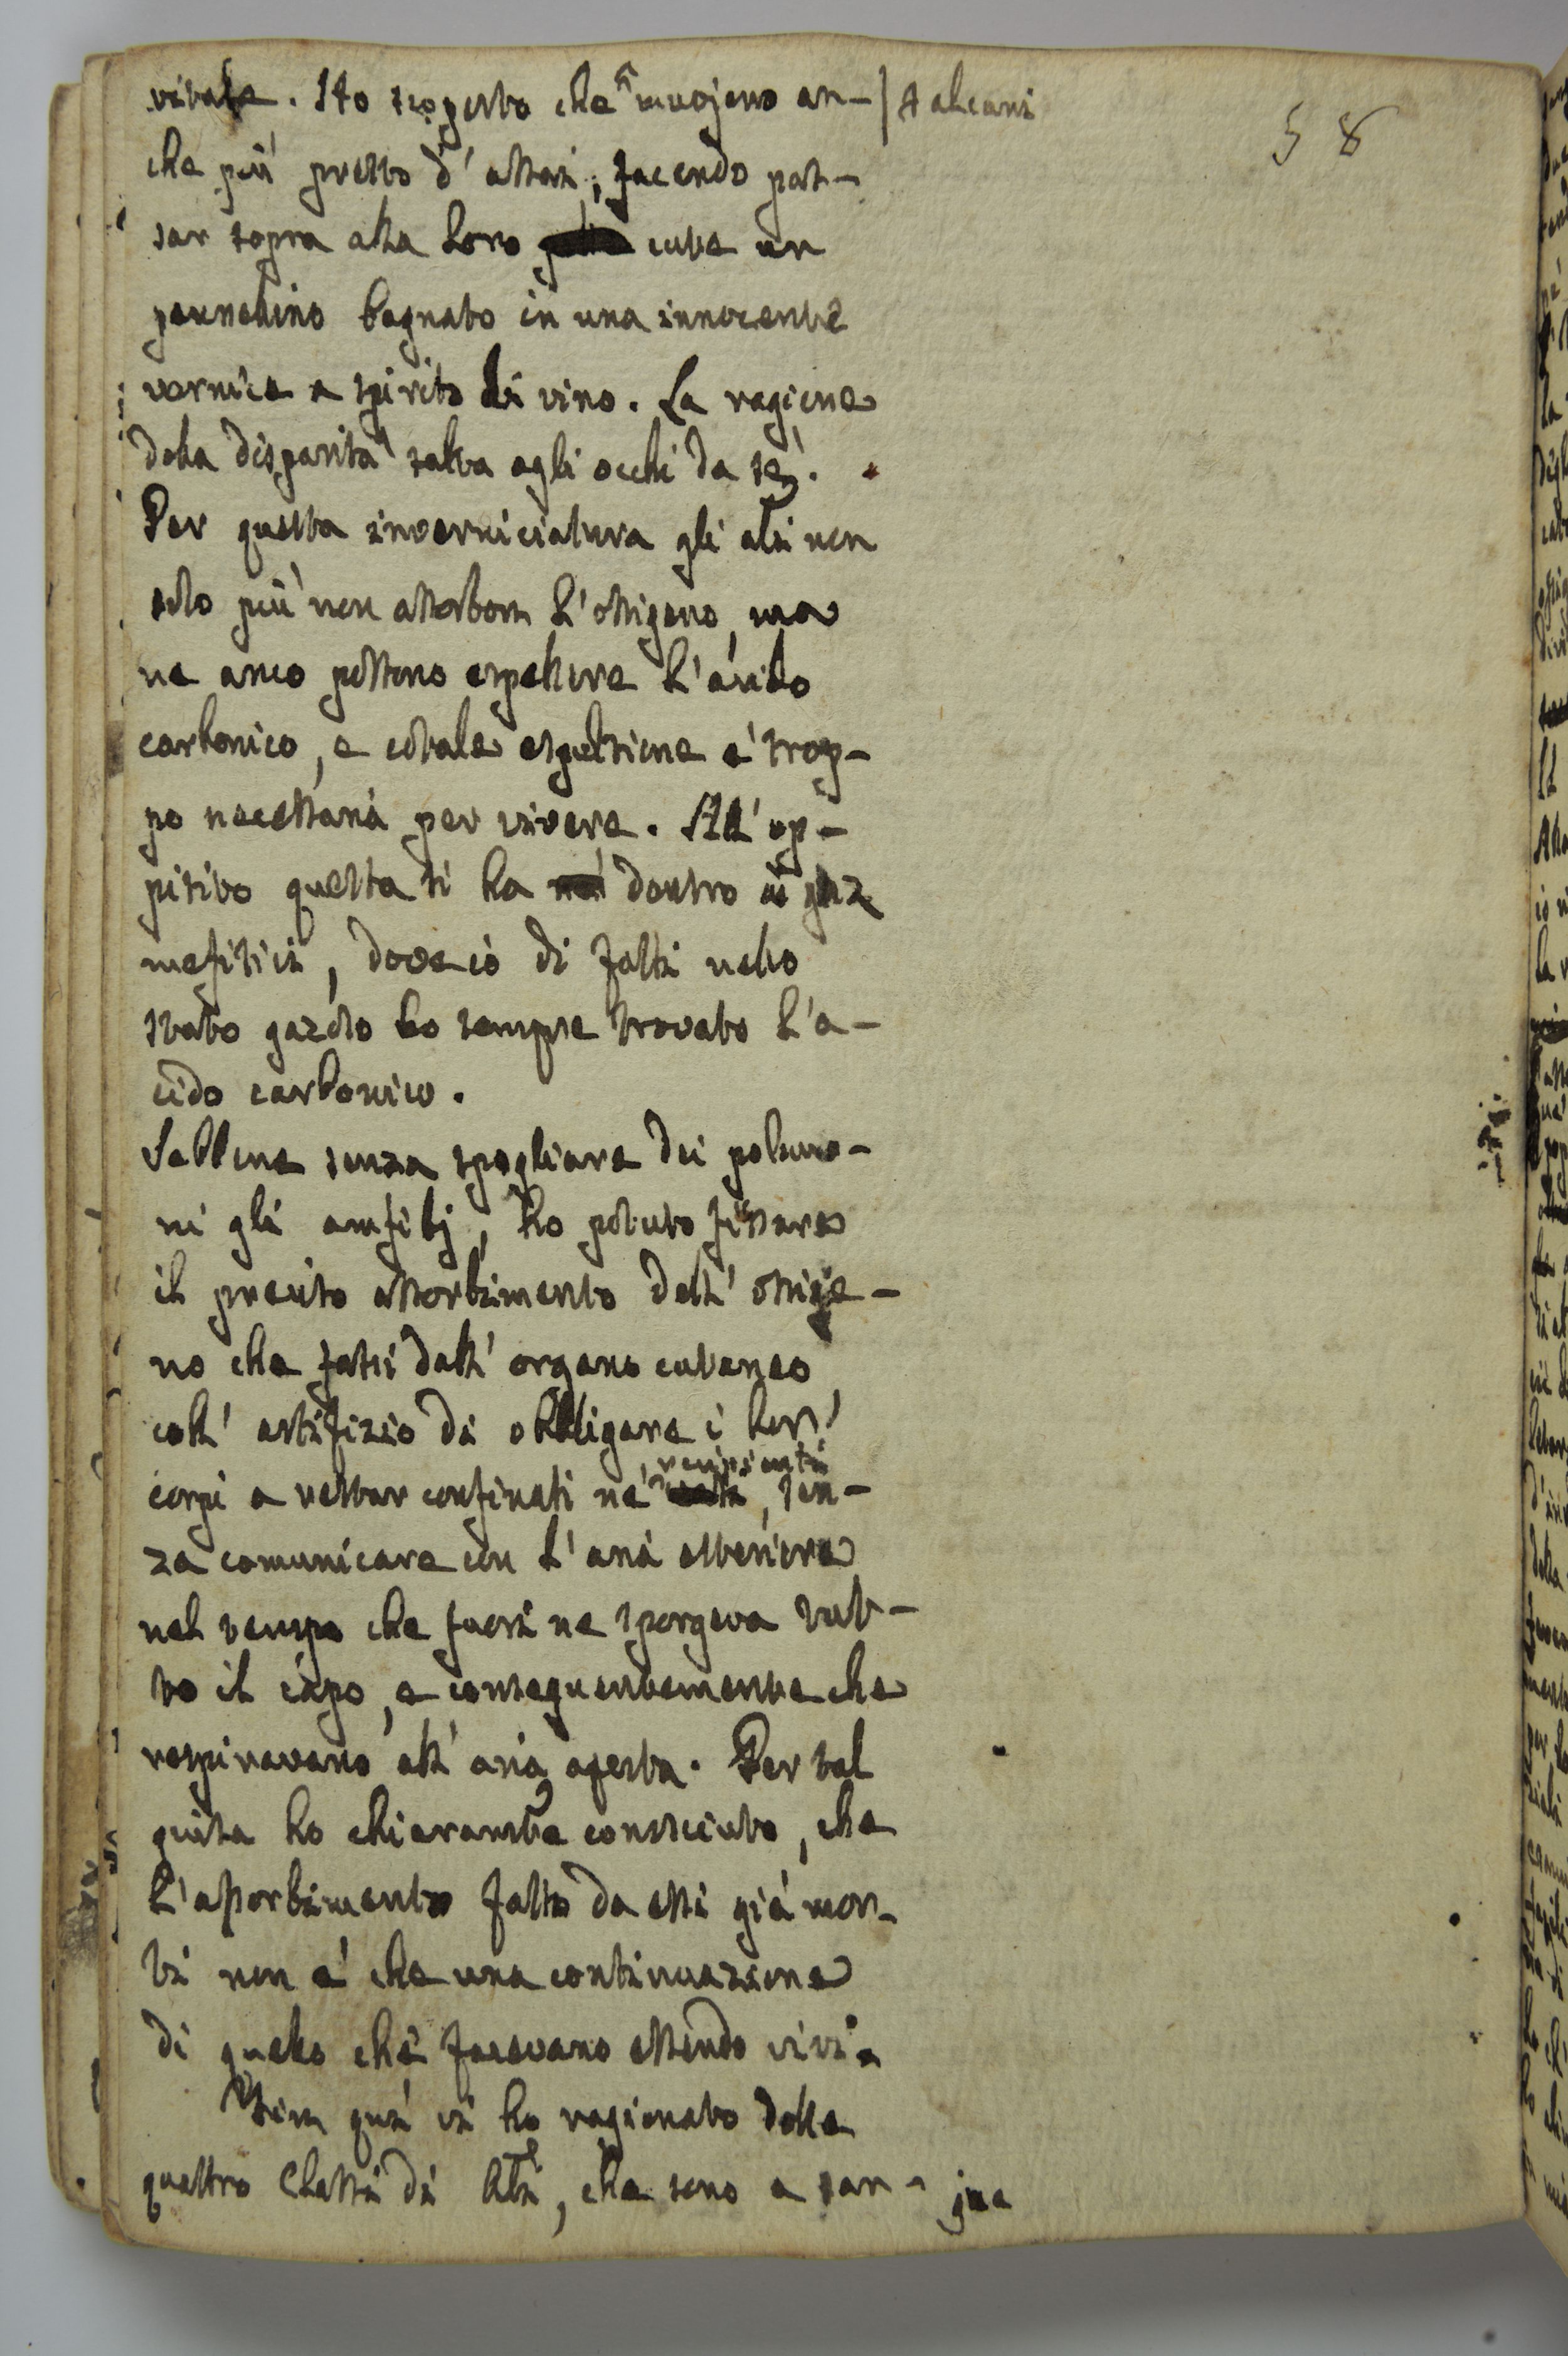 58
vitale. Ho scoperto che ^ muojono an- | Alcuni
che più presto d'assai, facendo pas-
sar sopra alla loro cute un
pannolino bagnato in una innocente
vernice a spirito di vino. La ragione
della disparità salta agli occhi da sè.
Per questa inverniciatura gli atri non
solo più non assorbon l'ossigeno, ma
ne anco possono espellere l'acido
carbonico, e cotale espulsione è trop-
po necessaria per vivere. All'op-
positivo questa si ha dentro ai gaz
mefitici, dove io di fatti nello
stato gazoso ho sempre trovato l'a-
cido carbonico.
Sebbene senza spogliare dei polmo-
ni gli amfibj, ho potuto fissare
il preciso assorbimento dell'ossige-
no che fassi dall'organo cutaneo
coll'artifizio di obbligare i loro
corpi a restar confinati ne' recipienti, sen-
za comunicare con l'aria esteriore
nel tempo che fuori ne sporgeva tut-
to il capo, e conseguentemente che
respiravano all'aria aperta. Per tal
guisa ho chiaramte conosciuto, che
l'assorbimento fatto da essi già mor-
ti non è che una continuazione
di quello che facevano essendo vivi.
Fin quì vi ho ragionato delle
quattro Classi di Ali, che sono a san- gue